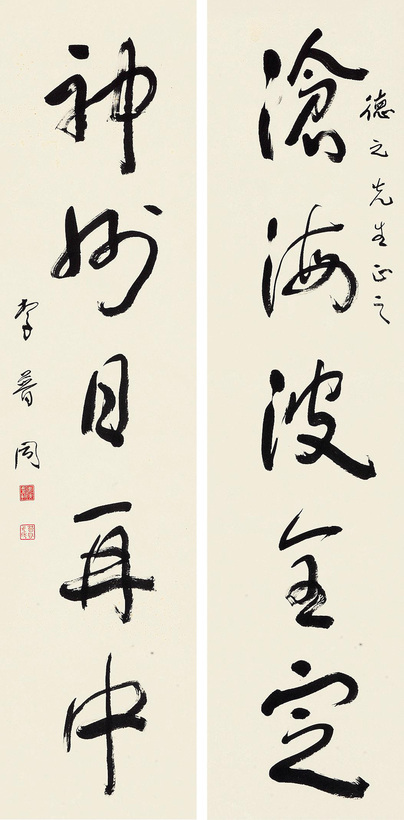 德之先生正之
滄海波全定
神州日再中
李普同